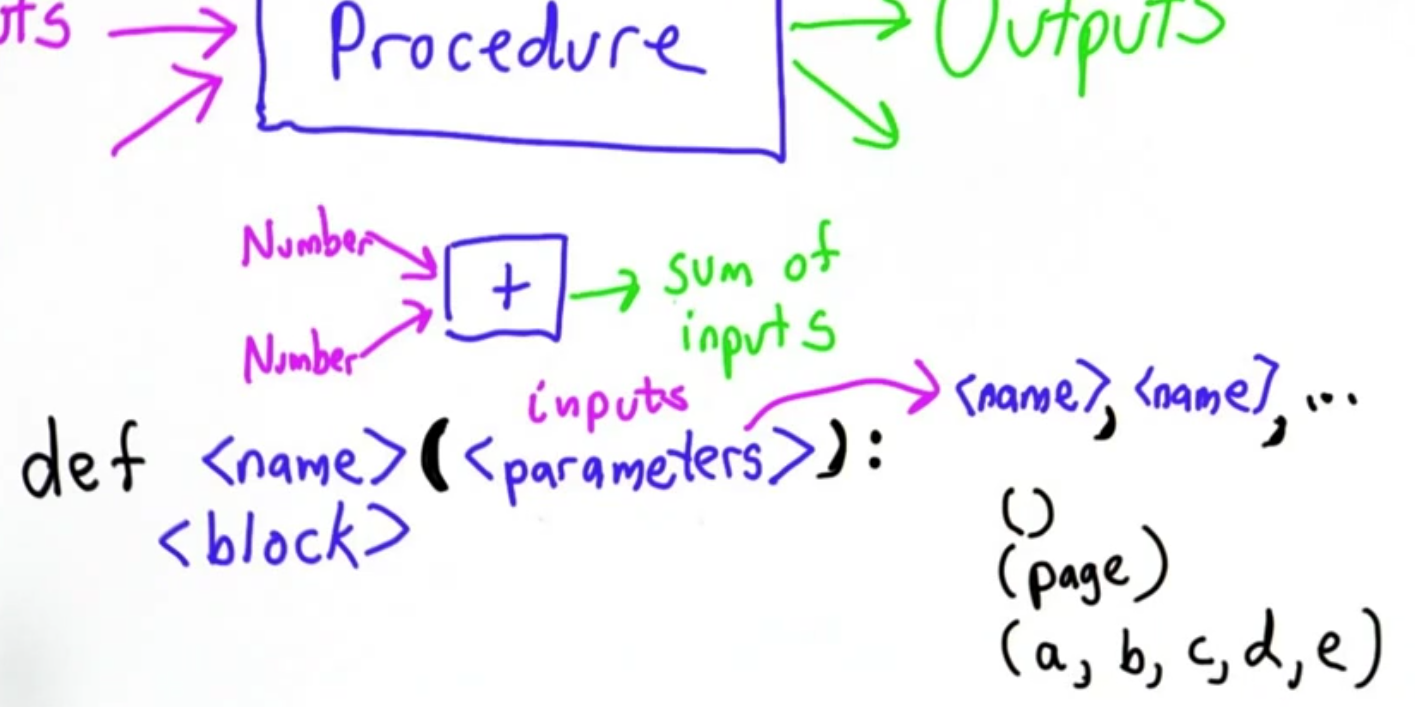 uts Procedure Outputs
Number + sum of
Number inputs
inputs <name>, <name>, ...
def <name>(<parameters>):
<block> ()
(page)
(a, b, c, d, e)